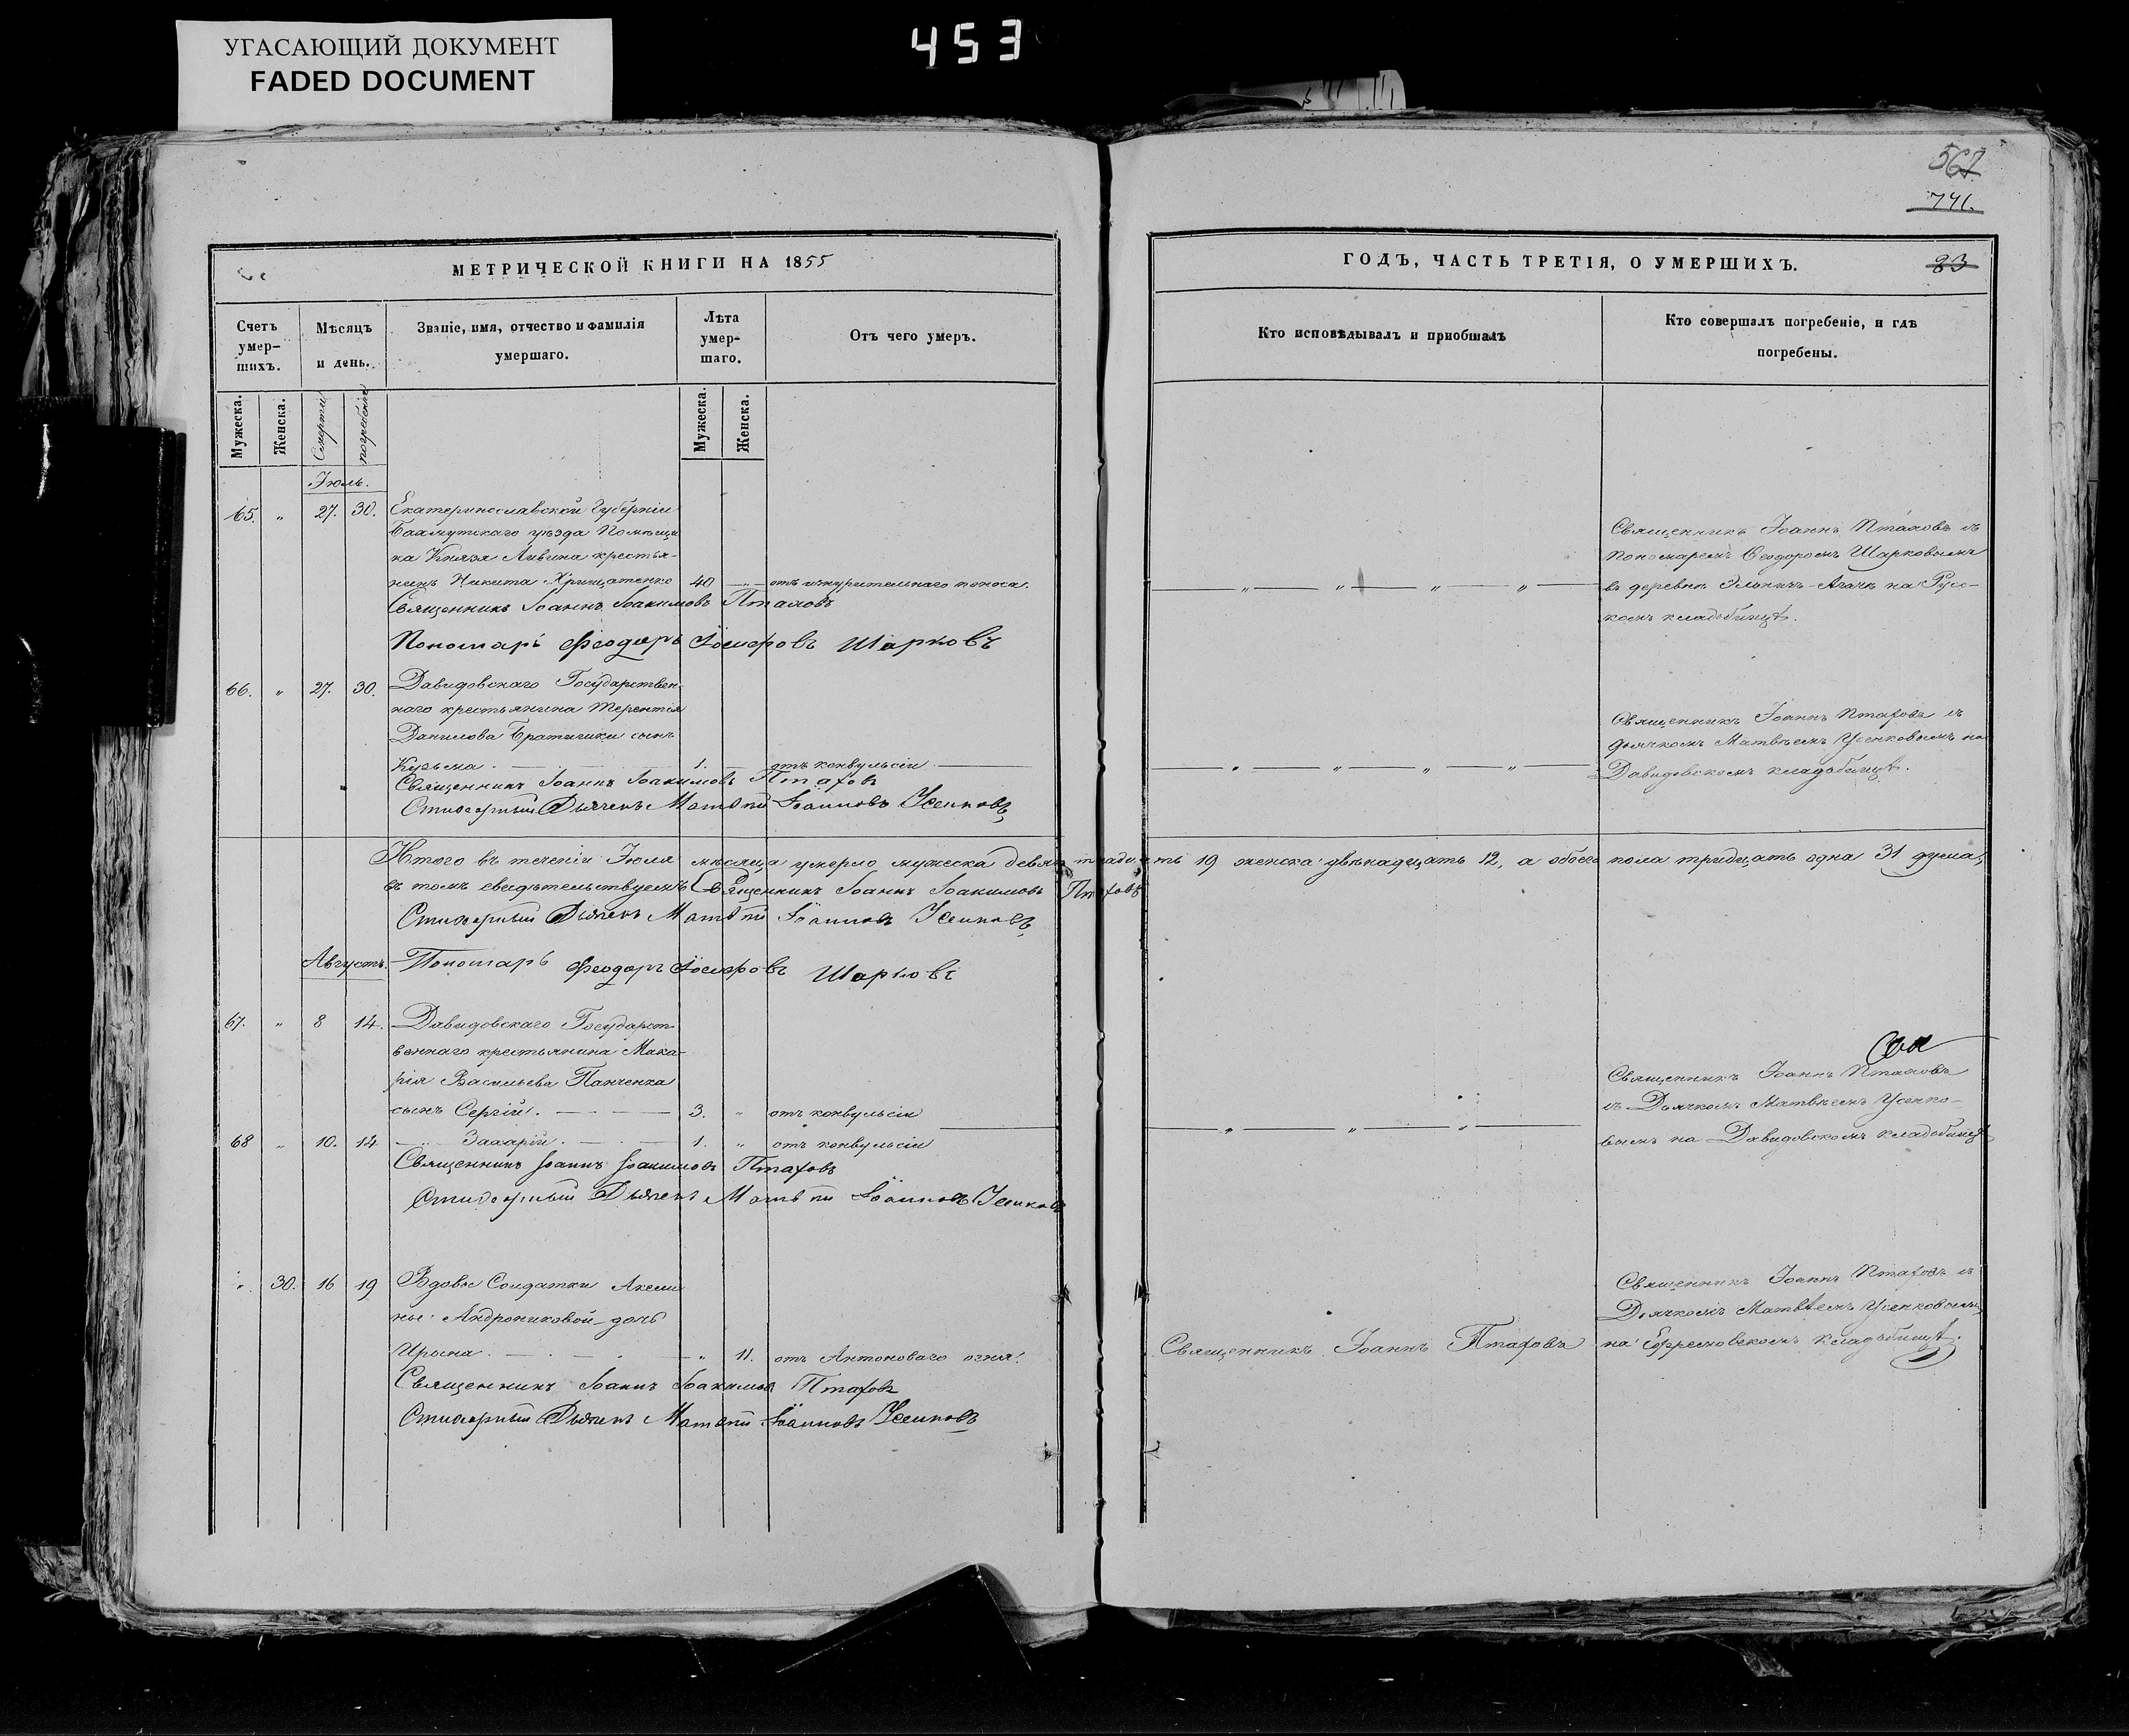 УГАСАЮЩИЙ ДОКУМЕНТ
FADED DOCUMENT
453
567
741.
МЕТРИЧЕСКОЙ КНИГИ НА 1855
Счетъ умер-шихъ.
Мѣсяцъ и день.
Званіе, имя, отчество и фамилія умершаго.
Лѣта умер-шаго.
Отъ чего умеръ.
Мужеска.
Женска.
Смерти
погребенія
Мужеска.
Женска.
Іюль.
65. " 27. 30. Екатеринославской Губерніи
Бахмутскаго уѣзда Помѣщи
ка Князя Ливина крестья-
нинъ Никита Хрищатенко 40 — отъ изнурительнаго поноса.
Священникъ Іоаннъ Іоакимовъ Птаховъ
Пономарь Феодоръ Іосифовъ Шарковъ
66. " 27. 30. Давидовскаго Государствен-
наго крестьянина Терентія
Данилова Братишки сынъ
Кузьма. 1. — отъ конвульсіи
Священникъ Іоаннъ Іоакимовъ Птаховъ
Стихарный Дьячекъ Матвѣй Іоанновъ Усенковъ
Итого въ теченіи Іюля мѣсяца умерло мужеска девятнадцать 19 женска двѣнадцать 12, а обоего пола тридцать одна 31 душа,
въ томъ свидѣтельствуемъ Священникъ Іоаннъ Іоакимовъ Птаховъ
Стихарный Дьячекъ Матвѣй Іоанновъ Усенковъ
Августъ. Пономарь Феодоръ Іосифовъ Шарковъ
67. " 8 14. Давидовскаго Государст-
веннаго крестьянина Мака-
рія Васильева Панченка
сынъ Сергій. 3. " отъ конвульсіи
68 " 10. 14 — Захарій. 1. " отъ конвульсіи
Священникъ Іоаннъ Іоакимовъ Птаховъ
Стихарный Дьячекъ Матвѣй Іоанновъ Усенковъ
". 30. 16 19 Вдовы Солдатки Аксин
ньи Андрониковой дочь
Ирина. " 11. отъ Антоноваго огня.
Священникъ Іоаннъ Іоакимов Птаховъ
Стихарный Дьячекъ Матвѣй Іоанновъ Усенковъ
ГОДЪ, ЧАСТЬ ТРЕТІЯ, О УМЕРШИХЪ.
83
Кто исповѣдывалъ и пріобщалъ
Кто совершалъ погребеніе, и гдѣ погребены.
Священникъ Іоаннъ Птаховъ съ
Пономаремъ Ѳеодоромъ Шарковымъ
въ деревнѣ Эльничъ-Агачъ на Русс-
комъ кладбищѣ.
Священникъ Іоаннъ Птаховъ съ
Дьячкомъ Матвѣемъ Усенковымъ на
Давидовскомъ кладбищѣ.
Священникъ Іоаннъ Птаховъ
съ Дьячкомъ Матвѣемъ Усенко-
вымъ на Давидовскомъ кладбищѣ
Священникъ Іоаннъ Птаховъ съ
Дьячкомъ Матвѣемъ Усенковымъ
Священникъ Іоаннъ Птаховъ на Ефремовскомъ кладбищѣ.